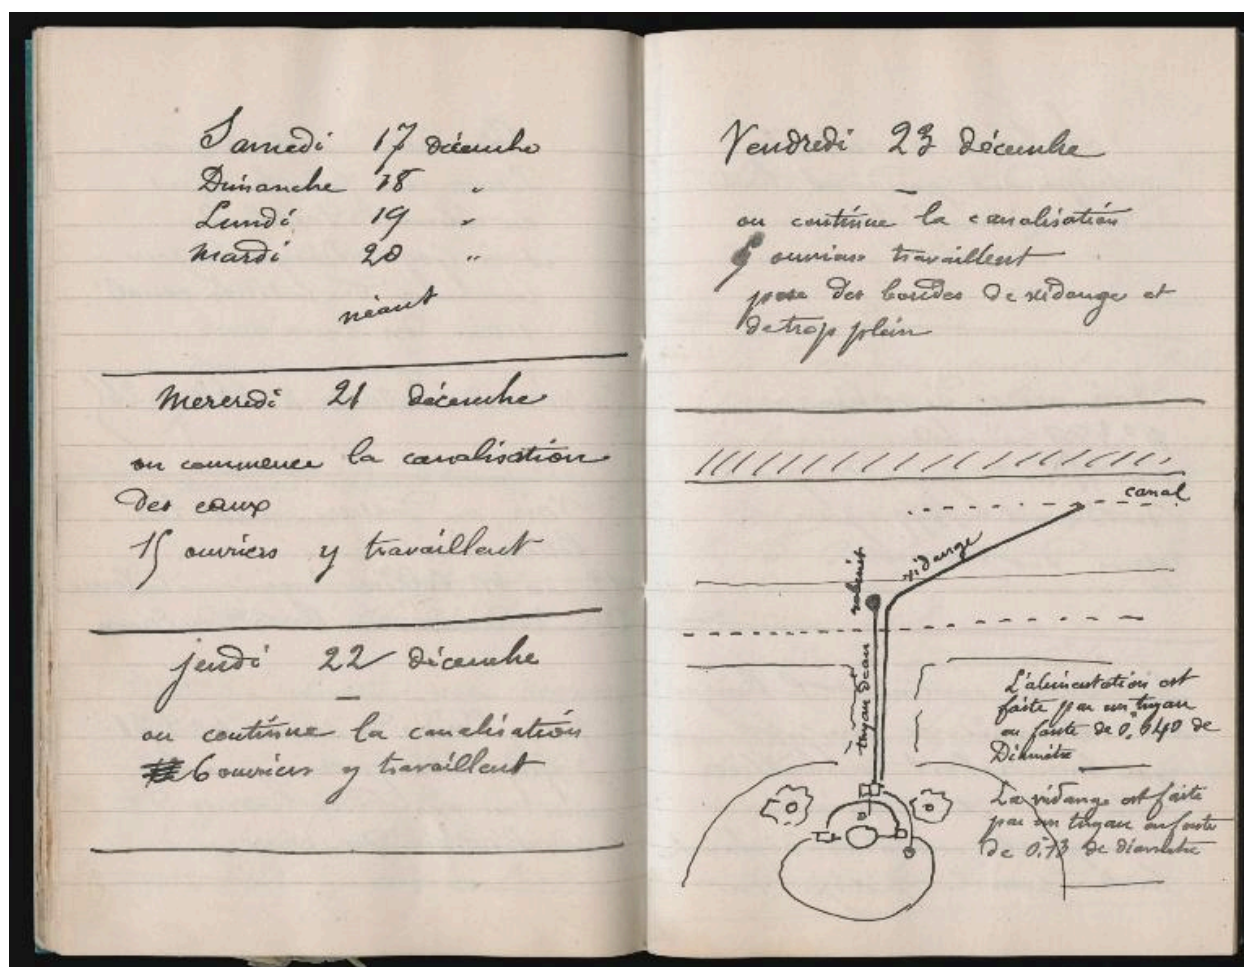 Samedi 17 décembre
Dimanche 18 "
Lundi 19 "
Mardi 20 "
néant
Mercredi 21 décembre
on commence la canalisation
des eaux
15 ouvriers y travaillent
jeudi 22 décembre
on continue la canalisation
6 ouvriers y travaillent
Vendredi 23 décembre
on continue la canalisation
ouvriers travaillent
pose des bondes de vidange et
de trop plein
canal
vidange
robinet
tuyau d'eau
L'alimentation est
faite par un tuyau
en fonte de 0,m040 de
Diamètre
La vidange est faite
par un tuyau en fonte
de de diamètre